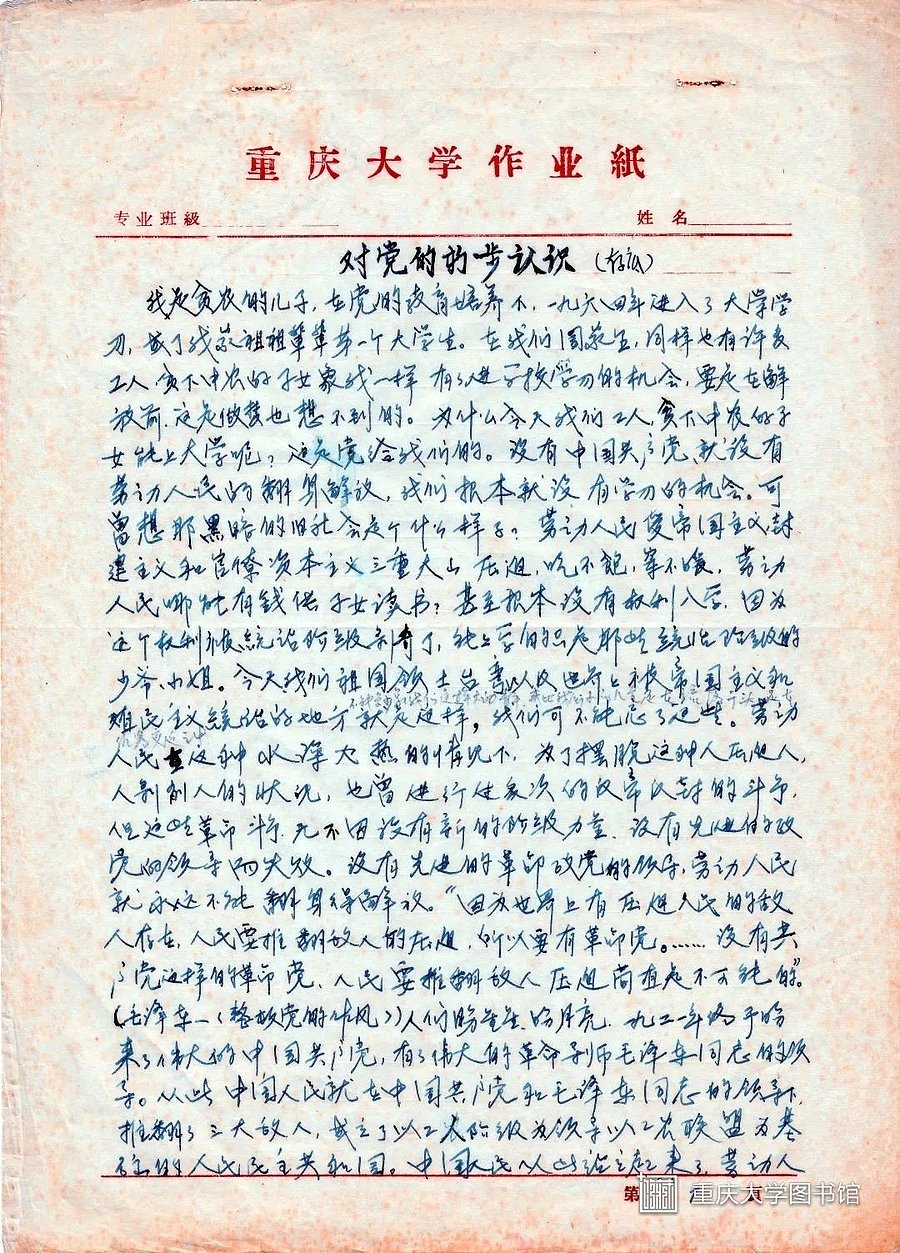 重庆大学作业紙
专业班級 姓名
对党的初步认识（存底）
我是贫农的儿子，在党的教育培养下，一九六四年进入了大学学
习，成了我家祖祖辈辈第一个大学生。在我们国家里，同样也有许多
工人贫下中农的子女象我一样有了进学校学习的机会，要是在解
放前，这是做梦也想不到的。为什么今天我们工人，贫下中农的子
女能上大学呢？这是党给我们的。没有中国共产党，就没有
劳动人民的翻身解放，我们根本就没有学习的机会。可
曾想那黑暗的旧社会是个什么样子？劳动人民受帝国主义封
建主义和官僚资本主义三重大山压迫，吃不饱，穿不暖，劳动
人民哪能有钱供子女读书？甚至根本没有权利入学，因为
这个权利被统治阶级剥夺了，能上学的只是那些统治阶级的
少爷、小姐。今天我们祖国领土台湾以及世界上被帝国主义和
殖民主义统治的地方就是这样，我们可不能忘了这些。劳动
人民在这种水深火热的情况下，为了摆脱这种人压迫人，
人剥削人的状况，也曾进行过多次的反帝反封的斗争，
但这些革命斗争，无不因没有新的阶级力量，没有先进的政
党的领导而失败。没有先进的革命政党的领导，劳动人民
就永远不能翻身得解放。“因为世界上有压迫人民的敌
人存在，人民要推翻敌人的压迫，所以要有革命党。……没有共
产党这样的革命党，人民要推翻敌人压迫简直是不可能的”。
（毛泽东—《整顿党的作风》）人们盼星星盼月亮，一九二一年终于盼
来了伟大的中国共产党，有了伟大的革命导师毛泽东同志的领
导。从此中国人民就在中国共产党和毛泽东同志的领导下，
推翻了三大敌人，成立了以工人阶级为领导以工农联盟为基
础的人民民主共和国。中国人民从此站立起来了，劳动人
第 页
重庆大学图书馆